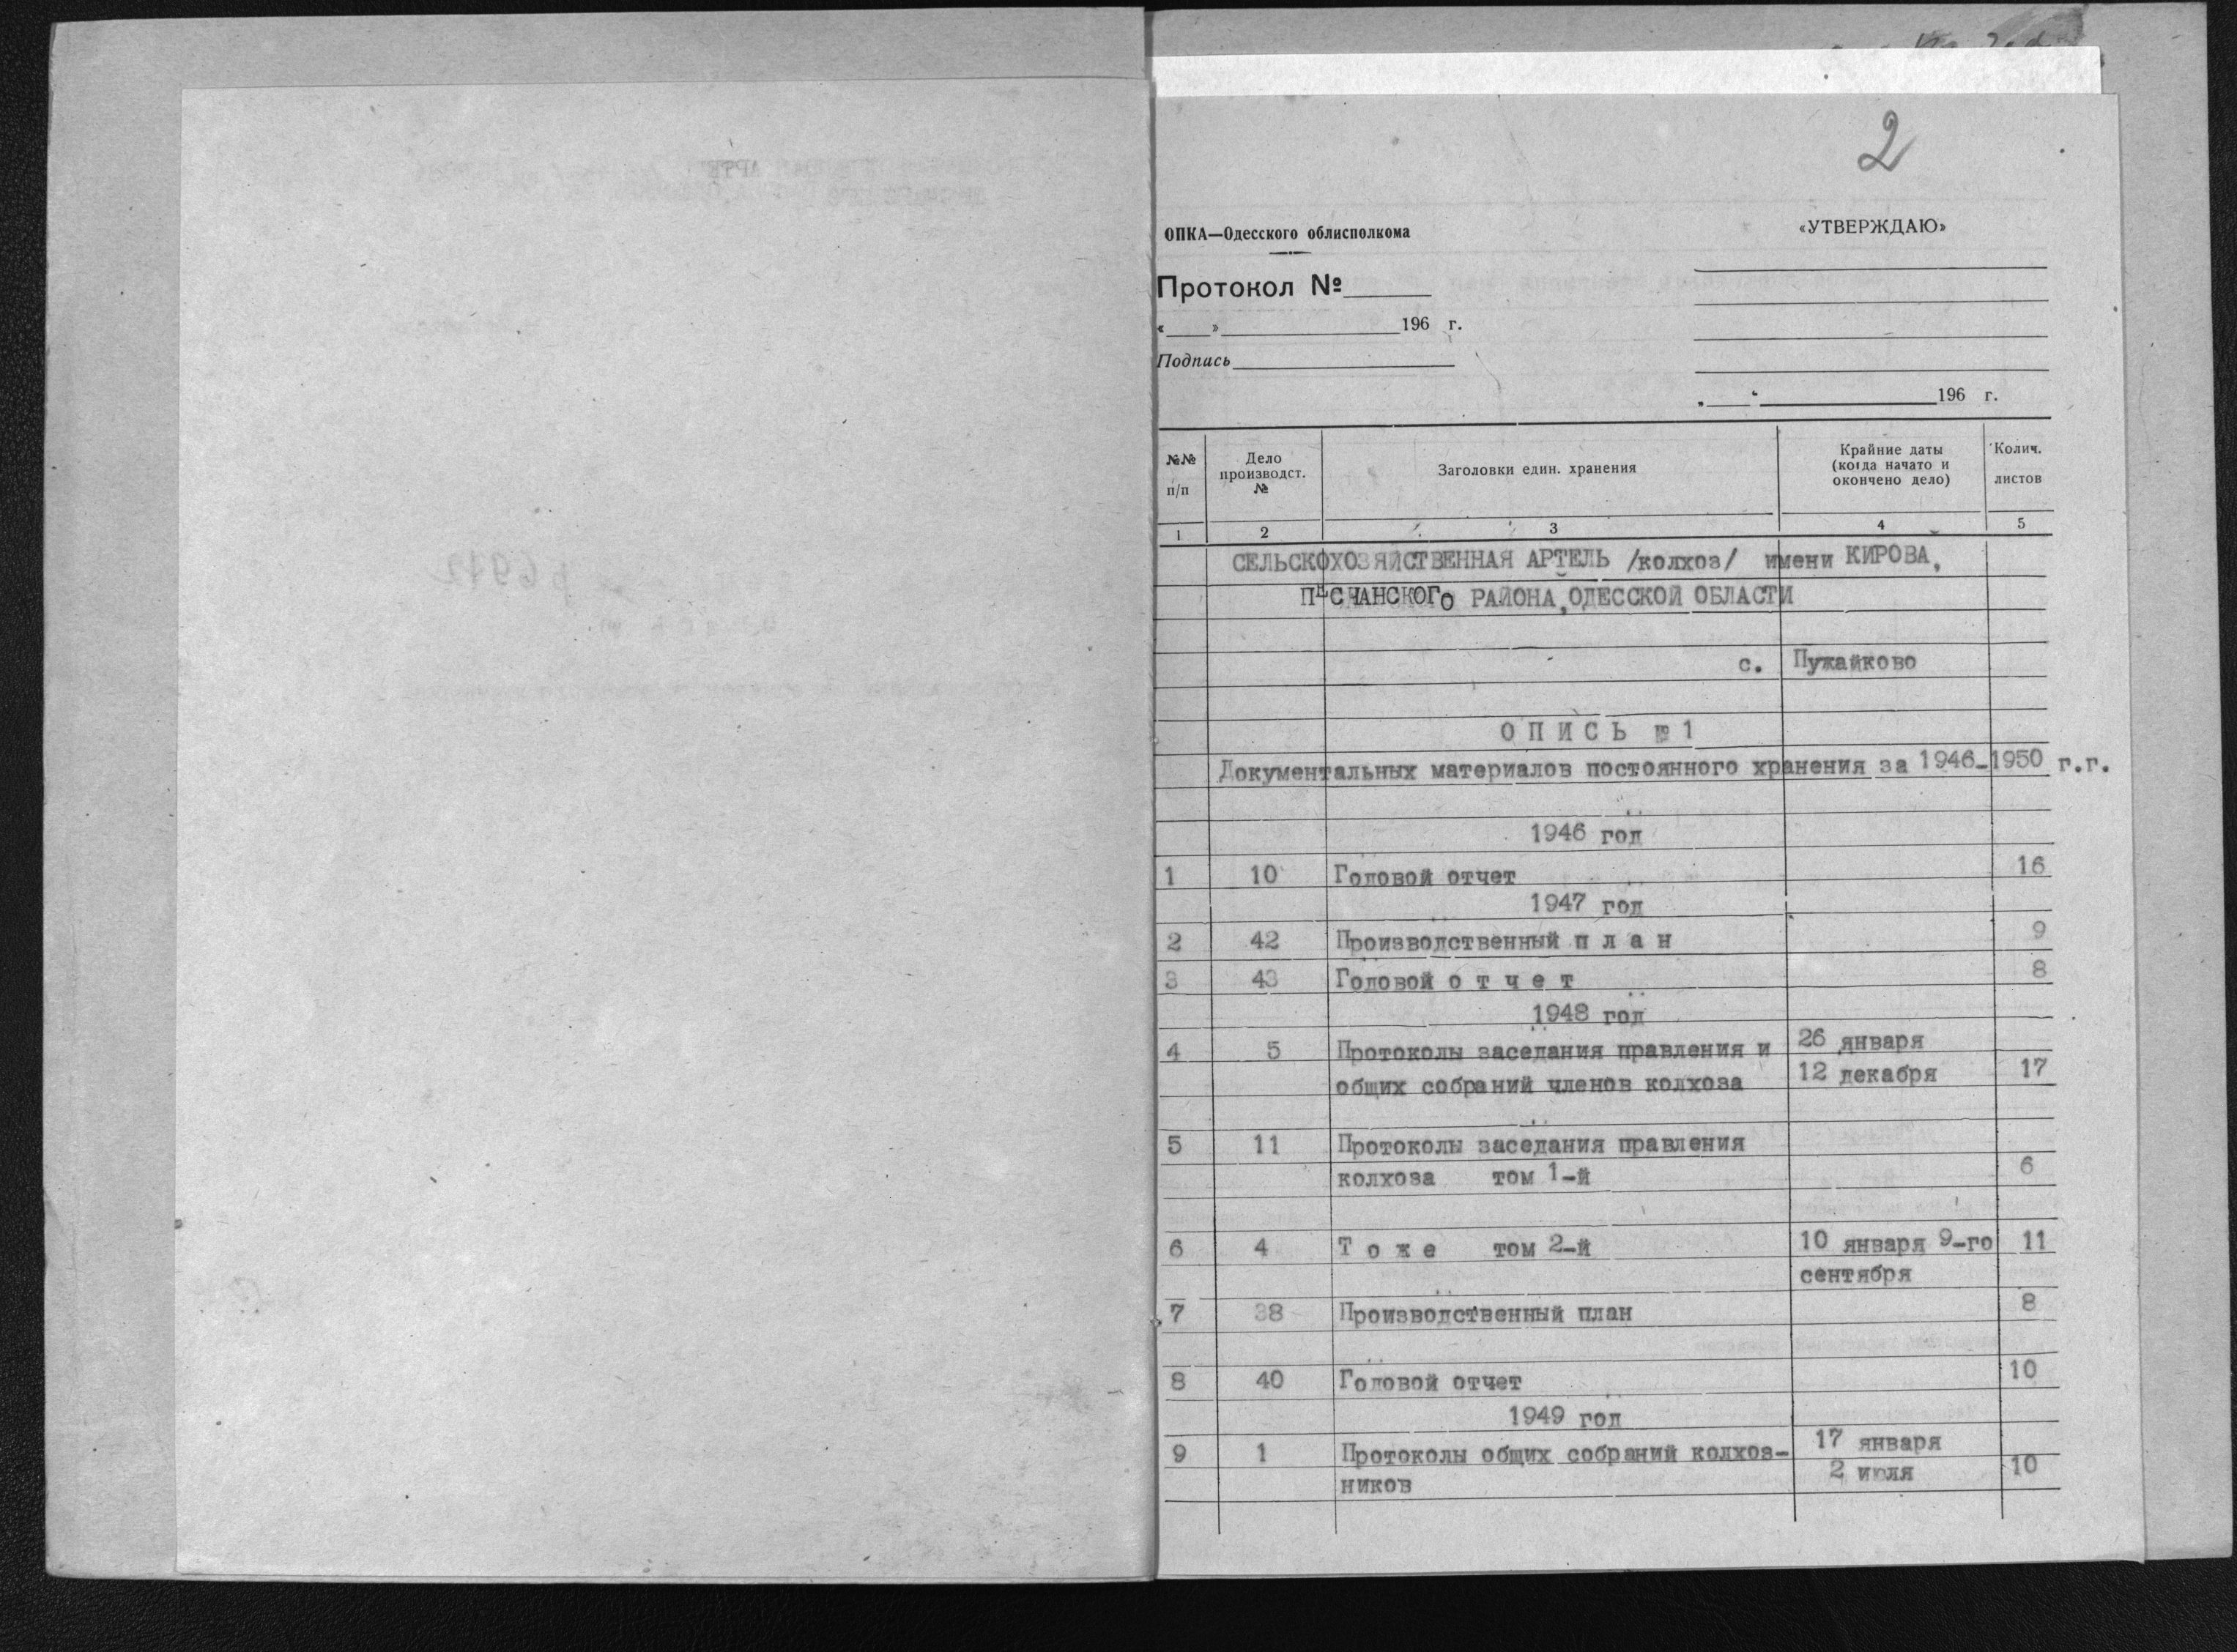 2
ОПКА—Одесского облисполкома
«УТВЕРЖДАЮ»
Протокол №
« » 196 г.
Подпись
„ “ 196 г.
№№ п/п
Дело производст. №
Заголовки един. хранения
Крайние даты (когда начато и окончено дело)
Колич. листов
1 2 3 4 5
СЕЛЬСКОХОЗЯЙСТВЕННАЯ АРТЕЛЬ /колхоз/ имени КИРОВА,
ПЕСЧАНСКОГО РАЙОНА, ОДЕССКОЙ ОБЛАСТИ
с. Пужайково
О П И С Ь № 1
Документальных материалов постоянного хранения за 1946-1950 г.г.
1946 год
1 10 Годовой отчет 16
1947 год
2 42 Производственный п л а н 9
3 43 Годовой о т ч е т 8
1948 год
4 5 Протоколы заседания правления и 26 января
общих собраний членов колхоза 12 декабря 17
5 11 Протоколы заседания правления
колхоза том 1-й 6
6 4 Т о ж е том 2-й 10 января 9-го 11
сентября
7 38 Производственный план 8
8 40 Годовой отчет 10
1949 год
9 1 Протоколы общих собраний колхоз- 17 января
ников 2 июля 10